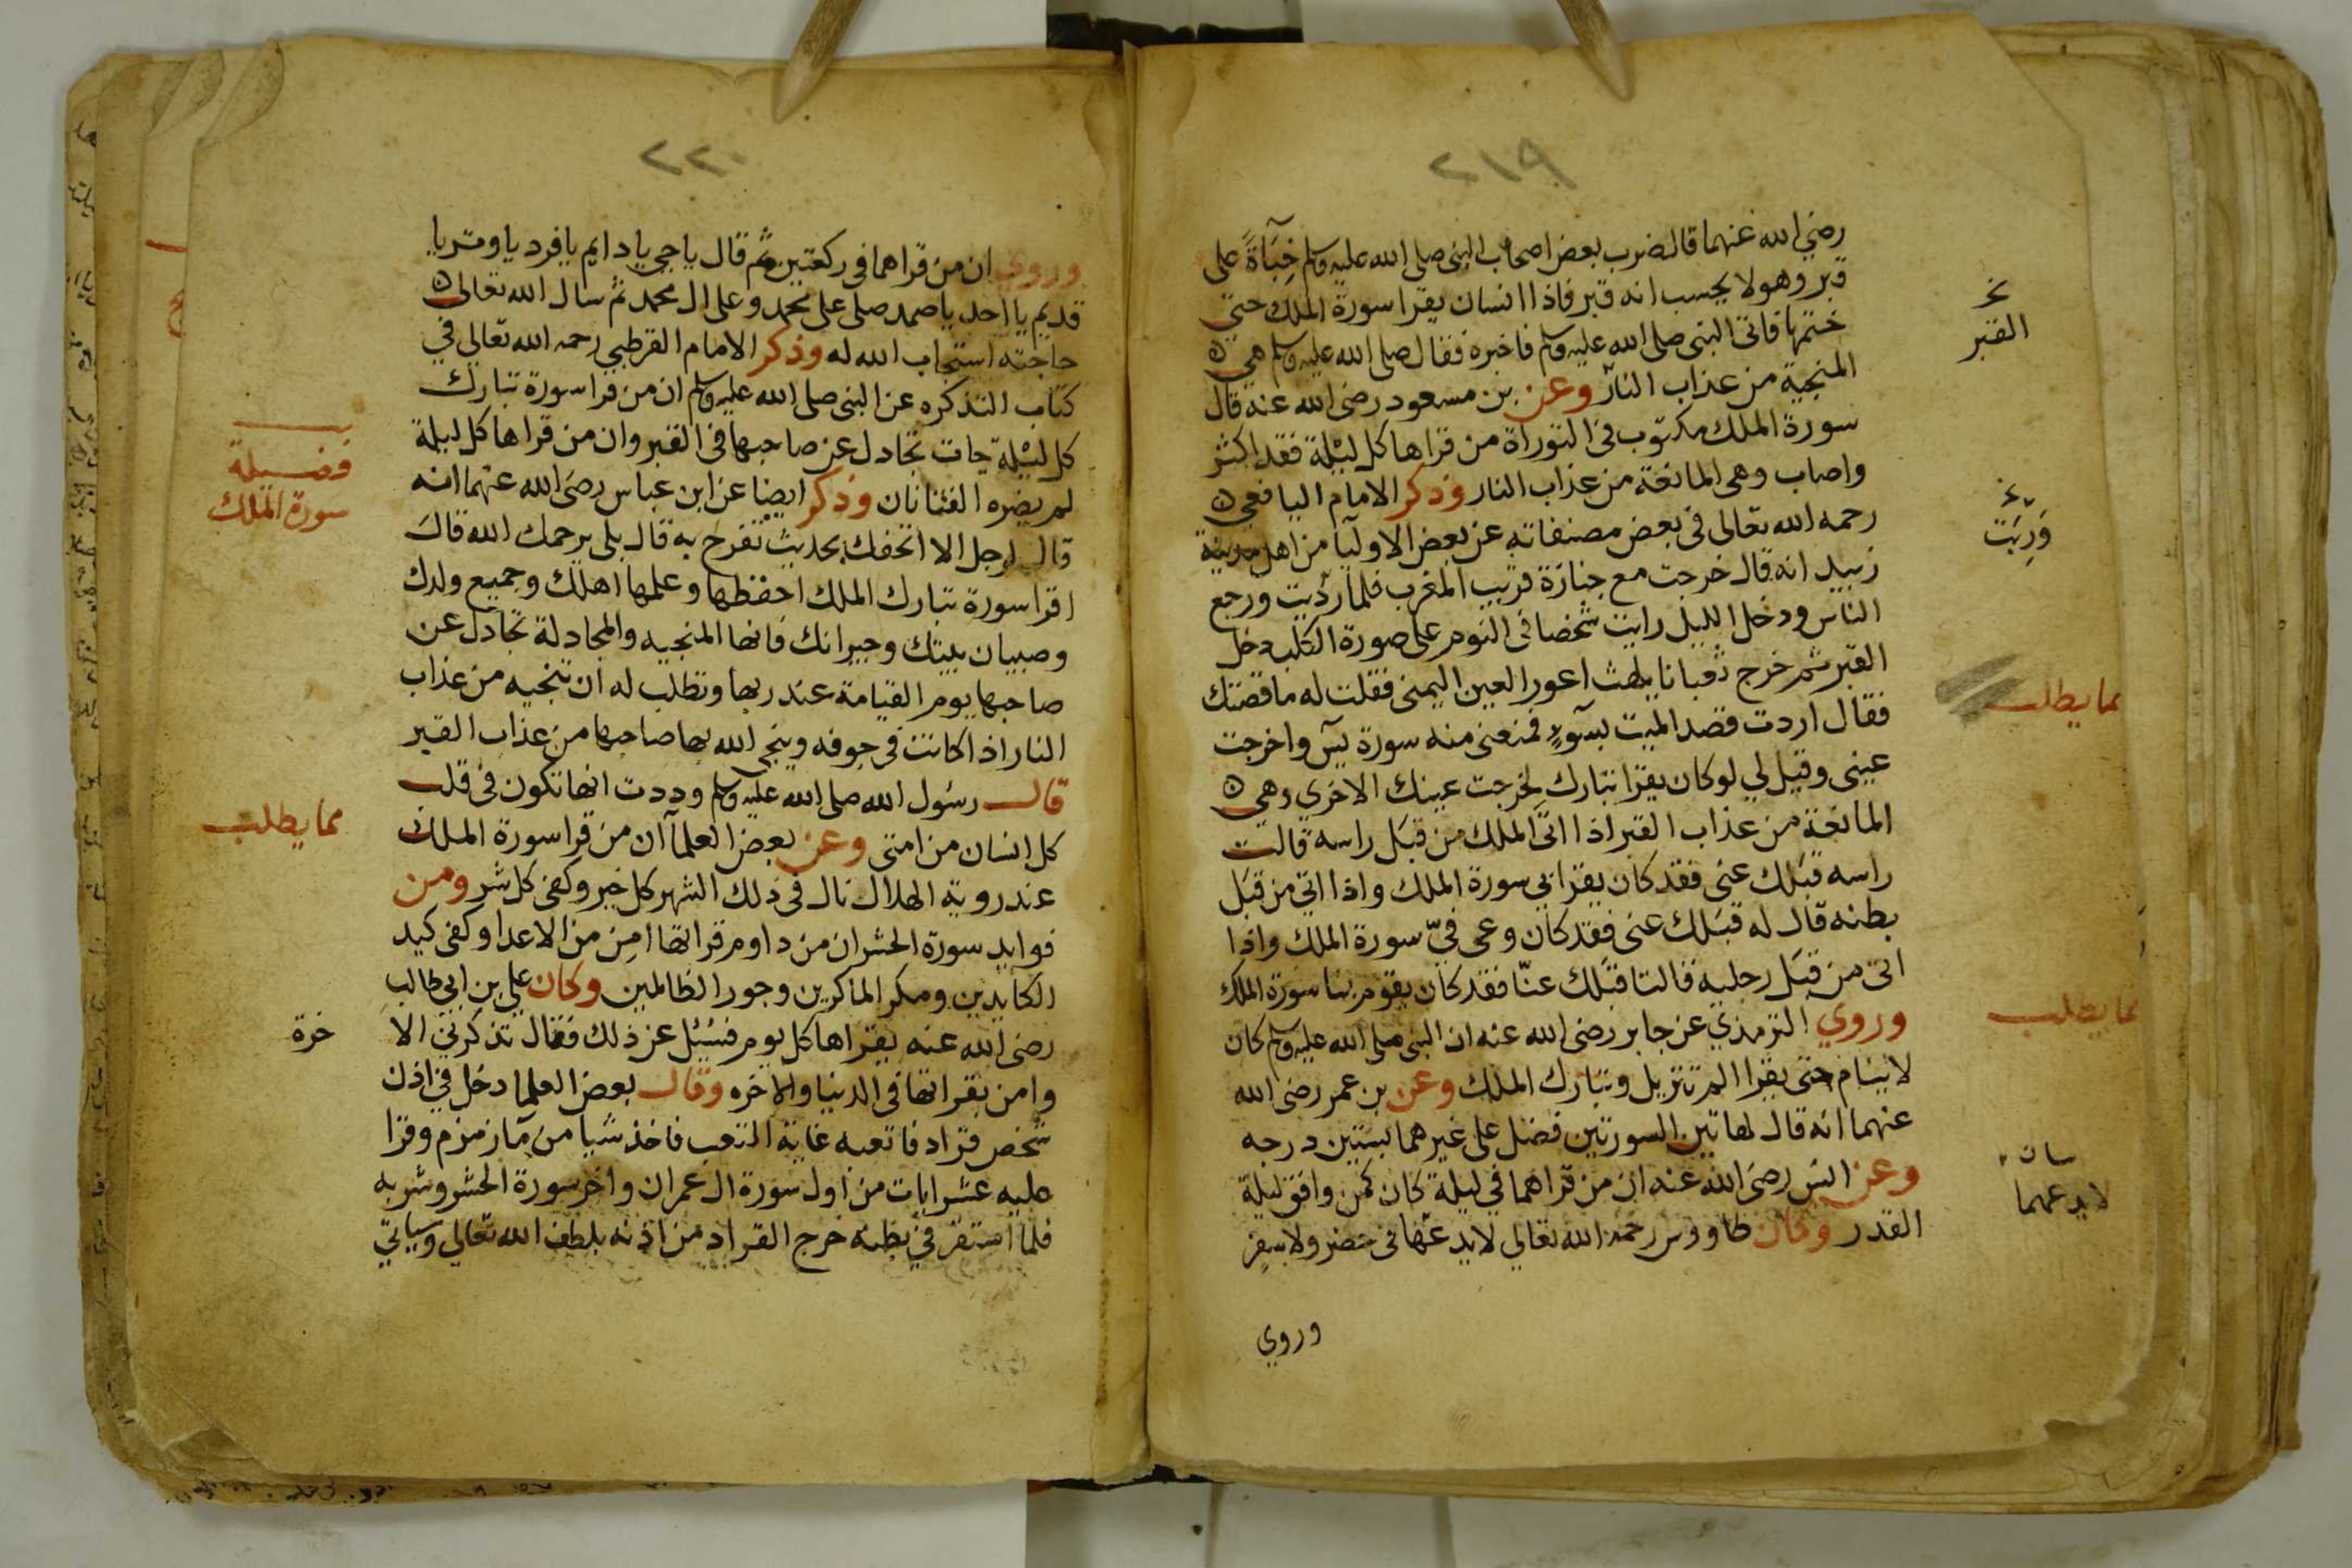 ٢١٩
رضي الله عنهما قال ضرب بعض اصحاب النبي صلى الله عليه وسلم خِبَآءَةً على
قبر وهو لا يحسب انه قبر فاذا انسان يقرا سورة الملك حتي
ختمها فاتى النبي صلى الله عليه وسلم فاخبره فقال صلى الله عليه وسلم هي ه
المنجية من عذاب النار وعن بن مسعود رضي الله عنه قال
سورة الملك مكتوب في التوراة من قراها كل ليلة فقد اكثر
واصاب وهي المانعة من عذاب النار وذكر الامام اليافعي ه
رحمه الله تعالى في بعض مصنفاته عن بعض الاوليآ من اهل مدينة
زبيد انه قال خرجت مع جنازة قريب المغرب فلما رُدّيت ورجع
الناس ودخل الليل رايت شخصا في النوم على صورة الكلب دخل
القبر ثم خرج تعبانا يلهث اعور العين اليمنى فقلت له ما قصتك
فقال اردت قصد الميت بسَوءٍ فمنعني منه سورة يسٓ واخرجت
عيني وقيل لي لو كان يقرا تبارك لخرجت عينك الاخري وهي ه
المانعة من عذاب القبر اذا اتى الملك من قبل راسه قالت
راسه قبَلك عني فقد كان يقرا بي سورة الملك واذا اتي من قبَل
بطنه قال له قبَلك عني فقد كان وعى فيّ سورة الملك واذا
اتى من قبَل رجليه قالتا قبَلك عنّا فقد كان يقوم بنا سورة الملك
وروي الترمذي عن جابر رضي الله عنه ان النبي صلى الله عليه وسلم كان
لا ينام حتى يقرا الم تنزيل وتبارك الملك وعن بن عمر رضي الله
عنهما انه قال لهاتين السورتين فضل على غيرهما بستين درجه
وعن انس رضي الله عنه ان من قراهما في ليلة كان كمن وافق ليلة
القدر وكان طاووس رحمه الله تعالي لا يدعها في حضر ولا سفر
وروي
نخ
القبر
وَرِيَت
مما يطلب
مما يطلب
لا يدعهما
٢٢٠
وروي ان من قراهما في ركعتين ثم قال يا حي يا دايم يا فرد يا وتر يا
قديم يا احد يا صمد صلى على محمد وعلى ال محمد ثم سال الله تعالى ه
حاجته استجاب الله له وذكر الامام القرطبي رحمه الله تعالي في
كتاب التذكره عن النبي صلى الله عليه وسلم ان من قرا سورة تبارك
كل ليلة جات تجادل عن صاحبها في القبر وان من قراها كل ليلة
لم يضره الفتانان وذكر ايضا عن ابن عباس رضي الله عنهما انه
قال لرجل الا اتحفك بحديث تفرح به قال بلى يرحمك الله قال
اقرا سورة تبارك الملك احفظها وعلمها اهلك وجميع ولدك
وصبيان بيتك وجيرانك فانها المنجيه والمجادلة تجادل عن
صاحبها يوم القيامة عند ربها وتطلب له ان تنجيه من عذاب
النار اذا كانت في جوفه وينجي الله بها صاحبها من عذاب القبر
قال رسول الله صلى الله عليه وسلم وددت انها تكون في قلب
كل انسان من امتي وعن بعض العلمآ ان من قرا سورة الملك
عند روية الهلال نال في ذلك الشهر كل خير وكفي كل شر ومن
فوايد سورة الحشر ان من داوم قراتها امن من الاعدا وكفى كيد
الكايدين ومكر الماكرين وجور الظالمين وكان علي بن ابي طالب
رضي الله عنه يقراها كل يوم فسُئِل عن ذلك فقال تذكرني الا
وامن بقراتها في الدنيا والاخره وقال بعض العلما دخل في اذن
شخص قراد فاتعبه غاية التعب فاخذ شيا من مآ زمزم وقرا
عليه عشر ايات من اول سورة ال عمران واخر سورة الحشر وشربه
فلما استقر في بطنه خرج القراد من اذنه بلطف الله تعالى وسياتي
فضيلة
سورة الملك
مما يطلب
خرة